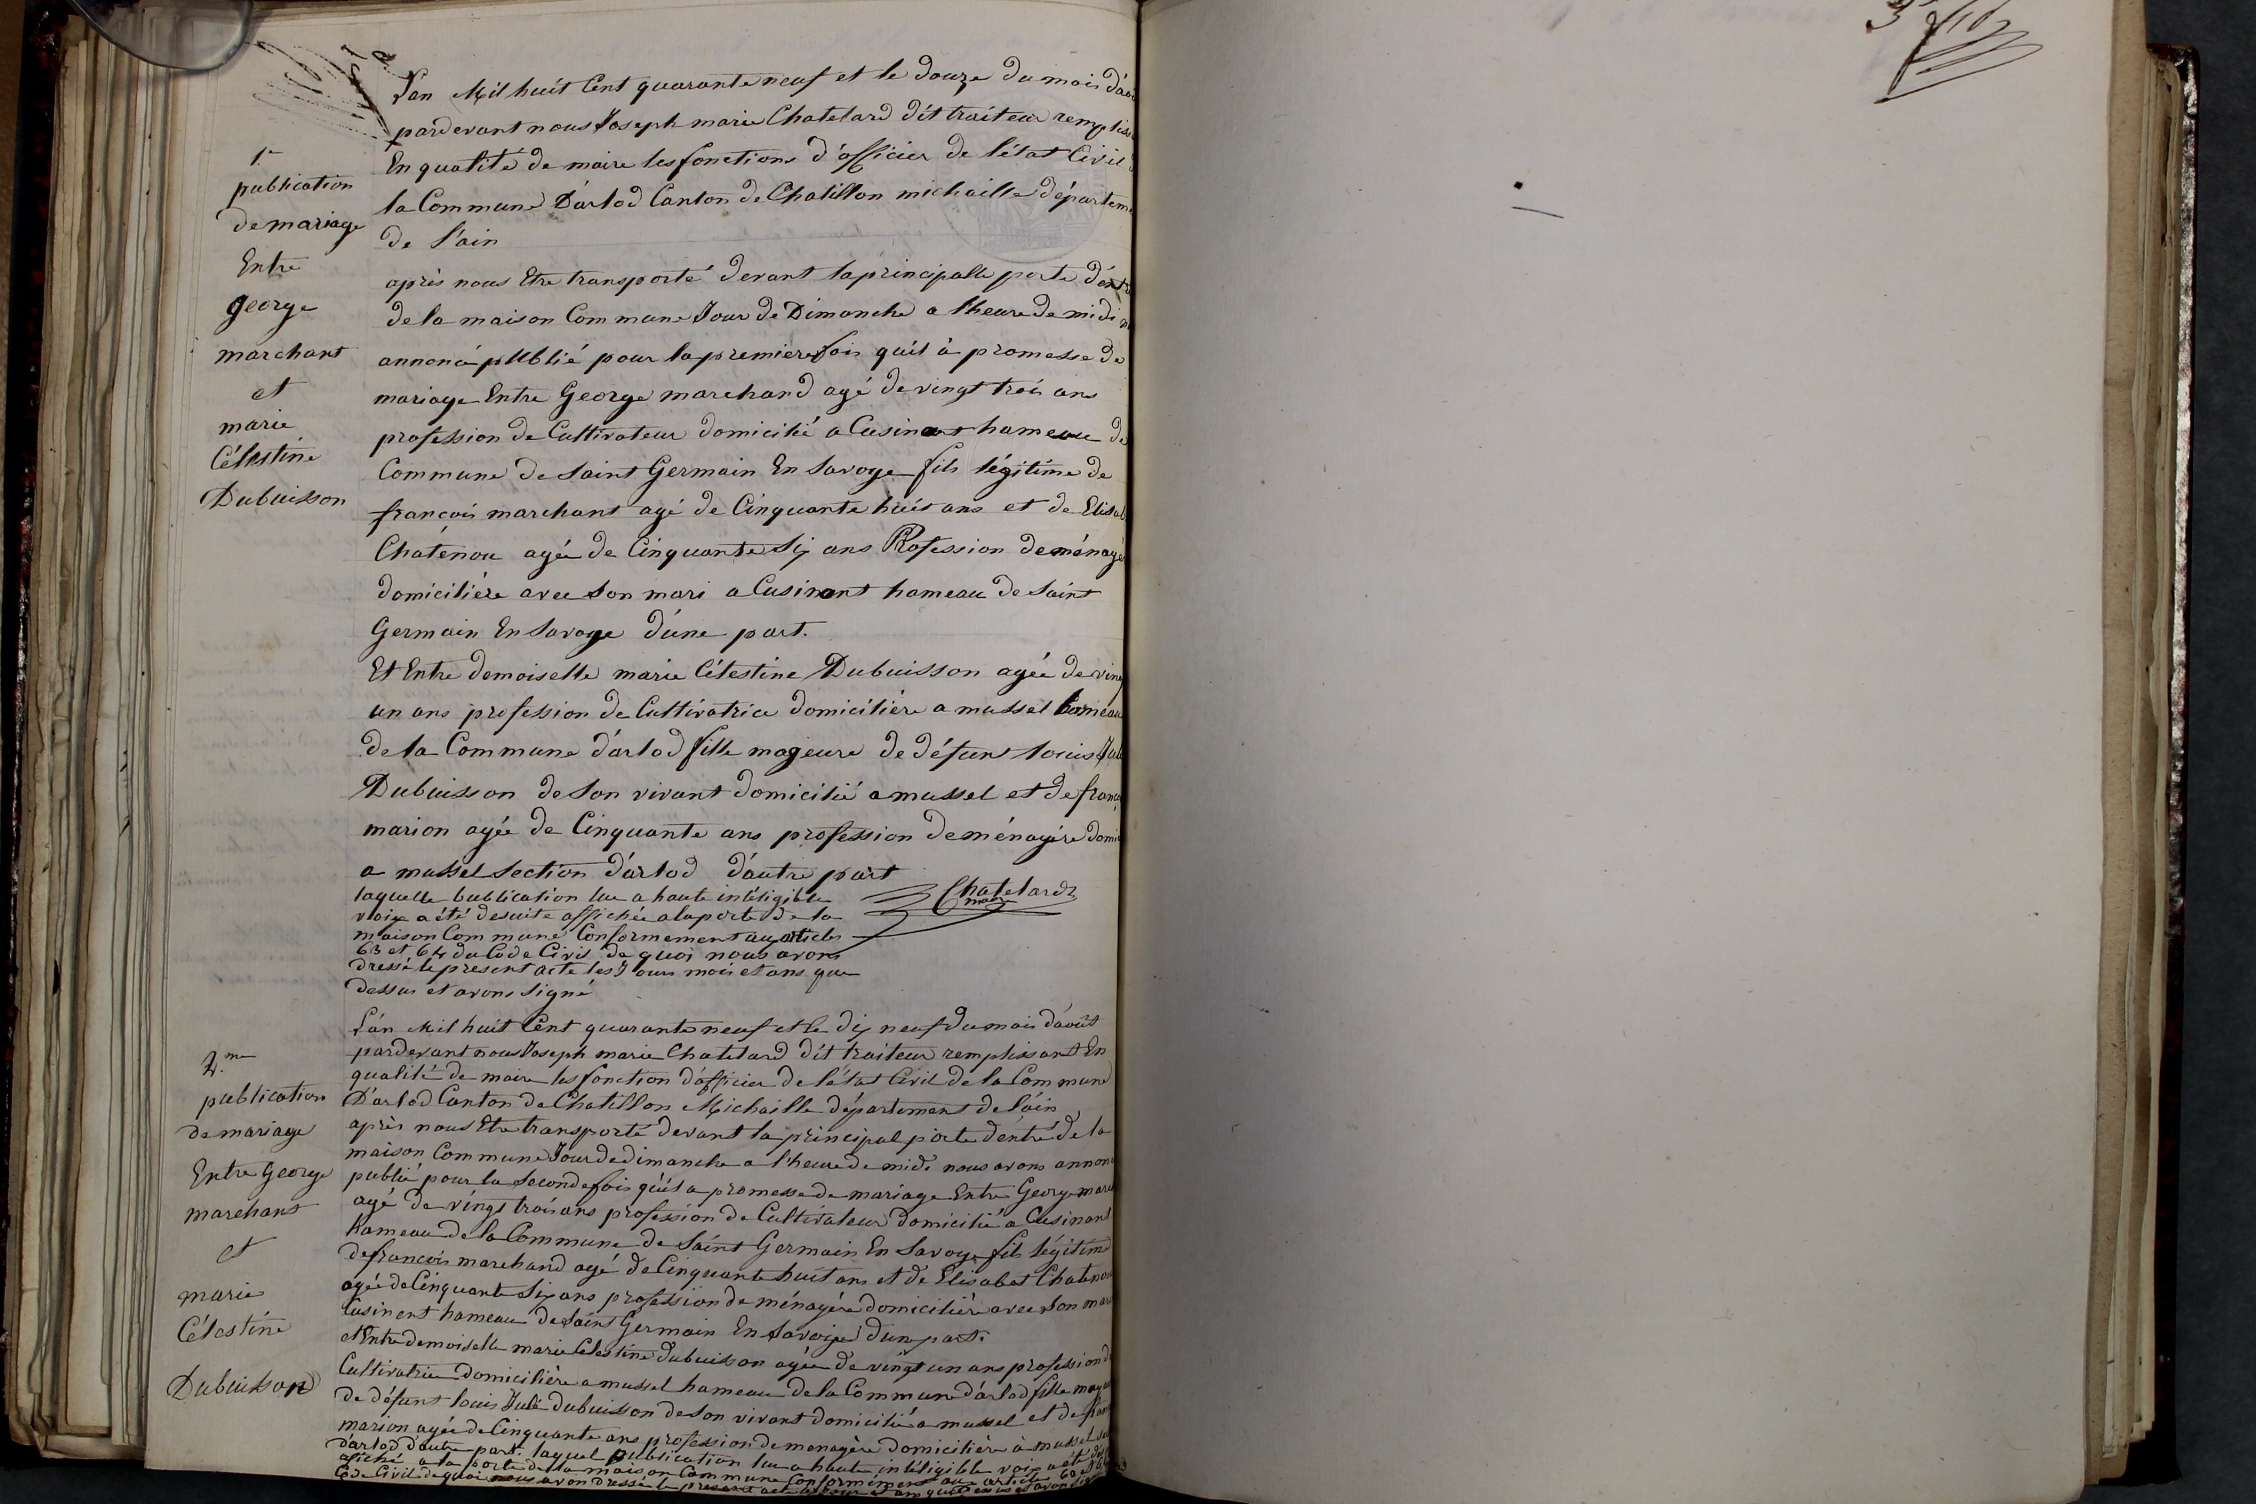 L'an Mil huit Cent quarante neuf et le douze du mois d'aou
pardevant nous Joseph marie Chatelard dit traiteur remplis
En qualité de maire les fonctions d'officier de l'état Civil
la Commune D'arlod Canton de Chatillon michaille départem
de l'ain
1re
publication
de mariage
Entre
george
marchant
et
marie
Célestine
Dubuisson
après nous Etre transporté devant la principalle porte d'ent
de la maison Commune Jour de Dimanche a l'heure de midi
annoncé publié pour la premiere fois quil à promesse de
mariage Entre George marchand agé de vingt trois ans
profession de Cultivateur domicilié a Cusinant hameau de
Commune de Saint Germain En Savoye fils légitime de
francois marchant agé de Cinquante huit ans et de Elisab
Chatenou agée de Cinquante Six ans Profession de ménagè
domicilière avec son mari a Cusinant hameau de Saint
Germain En Savoye d'une part.
Et Entre demoiselle marie Célestine Dubuisson agée de ving
un ans profession de Cultivatrice domicilière a mussel hameau
de la Commune d'arlod fille majeure de défunt louis Jul
Dubuisson de Son vivant domicilié a mussel et de franç
marion agée de Cinquante ans profession de ménagère domi
a mussel section d'arlod d'autre part
laquelle publication lue a haute inteligible
voix a été desuite affichée a la porte de la
maison Commune Conformement au articles
63 et 64 du Code Civil de quoi nous avons
dressé le present acte les Jours mois et ans que
dessus et avons Signé
Chatelard
maire
L'an Mil huit Cent quarante neuf et le dix neuf du mois d'août
pardevant nous Joseph marie Chatelard dit traiteur remplissant En
qualité de maire les fonction d'officier de l'état Civil de la Commune
D'arlod Canton de Chatillon Michaille département de l'ain
2.me
publication
de mariage
Entre George
marchant
et
marie
Célestine
Dubuisson
après nous Etre transporté devant la principal porte d'entré de la
maison Commune Jour de dimanche a l'heure de midi nous avons annon
publié pour la Seconde fois qu'il a promesse de mariage Entre George marc
agé de vingt trois ans profession de Cultivateur domicilié a Cusinant
hameau de la Commune de Saint Germain En Savoye fils légitime
de francois marchand agé de Cinquante huit ans et de Elisabet Chateno
agée de Cinquante Six ans profession de ménagère domicilière avec Son mar
Cusinent hameau de Saint Germain En Savoye d'une part.
et Entre demoiselle marie Célestine dubuisson agée de vingt un ans profession d
Cultivatrice domicilière a mussel hameau de la Commune d'arlod fille maje
de défunt louis Julé dubuisson de Son vivant domicilié a mussel et de fran
marion agée de Cinquante ans profession de menagère domicilière à mussel
d'arlod d'autre part. laquel publication lue a haute inteligible voix a été
afiché a la porte de la maison Commune Conformément aux article
Code Civil de quoi nous avon dressé le present acte